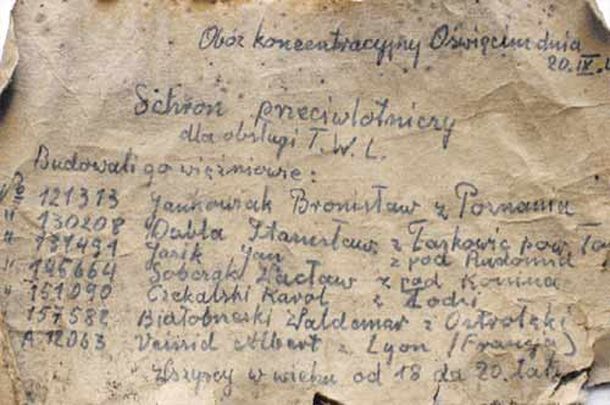 Obóz koncentracyjny Oświęcim dnia
20.IX.
Schron przeciwlotniczy
dla obsługi T.W.L.
Budowali go więźniowie:
№ 121313 Jankowiak Bronisław z Poznania
" 130208 Dubla Stanisław z Łaskowic pow.
" 131491 Jasik Jan z pod Radomia
" 145664 Sobczak Wacław z pod Konina
" 151090 Czekalski Karol z Łodzi
" 157582 Białobrzeski Waldemar z Ostrołęki
A 12063 Veissid Albert z Lyon (Francja)
Wszyscy w wieku od 18 do 20 lat